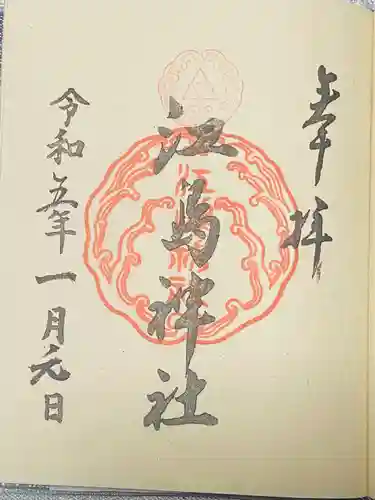 奉拝
江島神社
令和五年一月元日